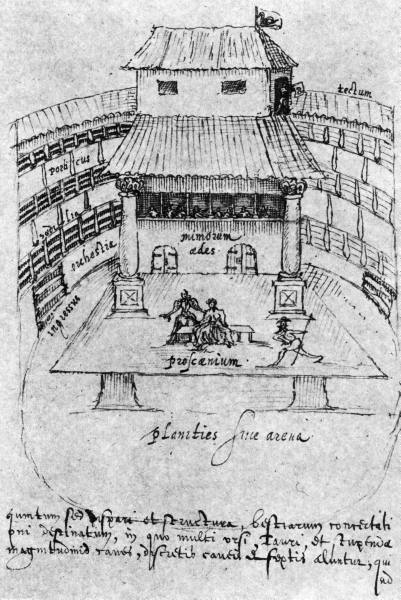 tectum
porticus
sedilia
orchestra
ingressus
mimorum
ædes.
proscænium.
planities sive arena
quintum sed dispari et structura, bestiarum concertati
oni destinatum, in quo multi ursi, Tauri, et stupendæ
magnitudinis canes, discretis caveis et septis aluntur, qui
ad